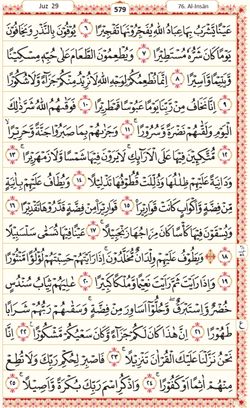 Juz 29
579
76. Al-Insān
عَيْنًا يَّشْرَبُ بِهَا عِبَادُ اللّٰهِ يُفَجِّرُوْنَهَا تَفْجِيْرًا ٦ يُوْفُوْنَ بِالنَّذْرِ وَيَخَافُوْنَ
يَوْمًا كَانَ شَرُّهٗ مُسْتَطِيْرًا ٧ وَيُطْعِمُوْنَ الطَّعَامَ عَلٰى حُبِّهٖ مِسْكِيْنًا
وَّيَتِيْمًا وَّاَسِيْرًا ٨ اِنَّمَا نُطْعِمُكُمْ لِوَجْهِ اللّٰهِ لَا نُرِيْدُ مِنْكُمْ جَزَآءً وَّلَا شُكُوْرًا
٩ اِنَّا نَخَافُ مِنْ رَّبِّنَا يَوْمًا عَبُوْسًا قَمْطَرِيْرًا ١٠ فَوَقٰىهُمُ اللّٰهُ شَرَّ ذٰلِكَ
الْيَوْمِ وَلَقّٰىهُمْ نَضْرَةً وَّسُرُوْرًا ١١ وَجَزٰىهُمْ بِمَا صَبَرُوْا جَنَّةً وَّحَرِيْرًا
١٢ مُّتَّكِـِٕيْنَ فِيْهَا عَلَى الْاَرَآئِكِ لَا يَرَوْنَ فِيْهَا شَمْسًا وَّلَا زَمْهَرِيْرًا ١٣
وَدَانِيَةً عَلَيْهِمْ ظِلٰلُهَا وَذُلِّلَتْ قُطُوْفُهَا تَذْلِيْلًا ١٤ وَيُطَافُ عَلَيْهِمْ بِاٰنِيَةٍ
مِّنْ فِضَّةٍ وَّاَكْوَابٍ كَانَتْ قَوَارِيْرَا۠ ١٥ قَوَارِيْرَا۠ مِنْ فِضَّةٍ قَدَّرُوْهَا تَقْدِيْرًا ١٦
وَيُسْقَوْنَ فِيْهَا كَاْسًا كَانَ مِزَاجُهَا زَنْجَبِيْلًا ١٧ عَيْنًا فِيْهَا تُسَمّٰى سَلْسَبِيْلًا
١٨ وَيَطُوْفُ عَلَيْهِمْ وِلْدَانٌ مُّخَلَّدُوْنَ اِذَا رَاَيْتَهُمْ حَسِبْتَهُمْ لُؤْلُؤًا مَّنْثُوْرًا
١٩ وَاِذَا رَاَيْتَ ثَمَّ رَاَيْتَ نَعِيْمًا وَّمُلْكًا كَبِيْرًا ٢٠ عٰلِيَهُمْ ثِيَابُ سُنْدُسٍ
خُضْرٌ وَّاِسْتَبْرَقٌ وَّحُلُّوْٓا اَسَاوِرَ مِنْ فِضَّةٍ وَسَقٰىهُمْ رَبُّهُمْ شَرَابًا
طَهُوْرًا ٢١ اِنَّ هٰذَا كَانَ لَكُمْ جَزَآءً وَّكَانَ سَعْيُكُمْ مَّشْكُوْرًا ٢٢ اِنَّا
نَحْنُ نَزَّلْنَا عَلَيْكَ الْقُرْاٰنَ تَنْزِيْلًا ٢٣ فَاصْبِرْ لِحُكْمِ رَبِّكَ وَلَا تُطِعْ
مِنْهُمْ اٰثِمًا اَوْ كَفُوْرًا ٢٤ وَاذْكُرِ اسْمَ رَبِّكَ بُكْرَةً وَّاَصِيْلًا ٢٥